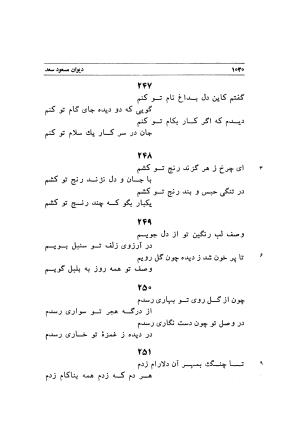 ۱۰۴۰ دیوان مسعود سعد
۲۴۷
گفتم کاین دل بداغ نام تو کنم
گویی که دو دیده جای گام تو کنم
دیدم که اگر کار بکام تو کنم
جان در سر کار یك سلام تو کنم
۲۴۸
ای چرخ ز هر گزند رنج تو کشم ۳
با جان و دل نژند رنج تو کشم
در تنگی حبس و بند رنج تو کشم
یکبار بگو که چند رنج تو کشم
۲۴۹
وصف لب رنگین تو از دل جویم
در آرزوی زلف تو سنبل بویم
تا پر خون شد ز دیده چون گل رویم ۶
وصف تو همه روز به بلبل گویم
۲۵۰
چون از گل روی تو بیاری رسدم
از درگه هجر تو سواری رسدم
در وصل تو چون دست نگاری رسدم
در دیده ز غمزهٔ تو خاری رسدم
۲۵۱
تا چنگ بمهر آن دلارام زدم ۹
هر دم که زدم همه بناکام زدم